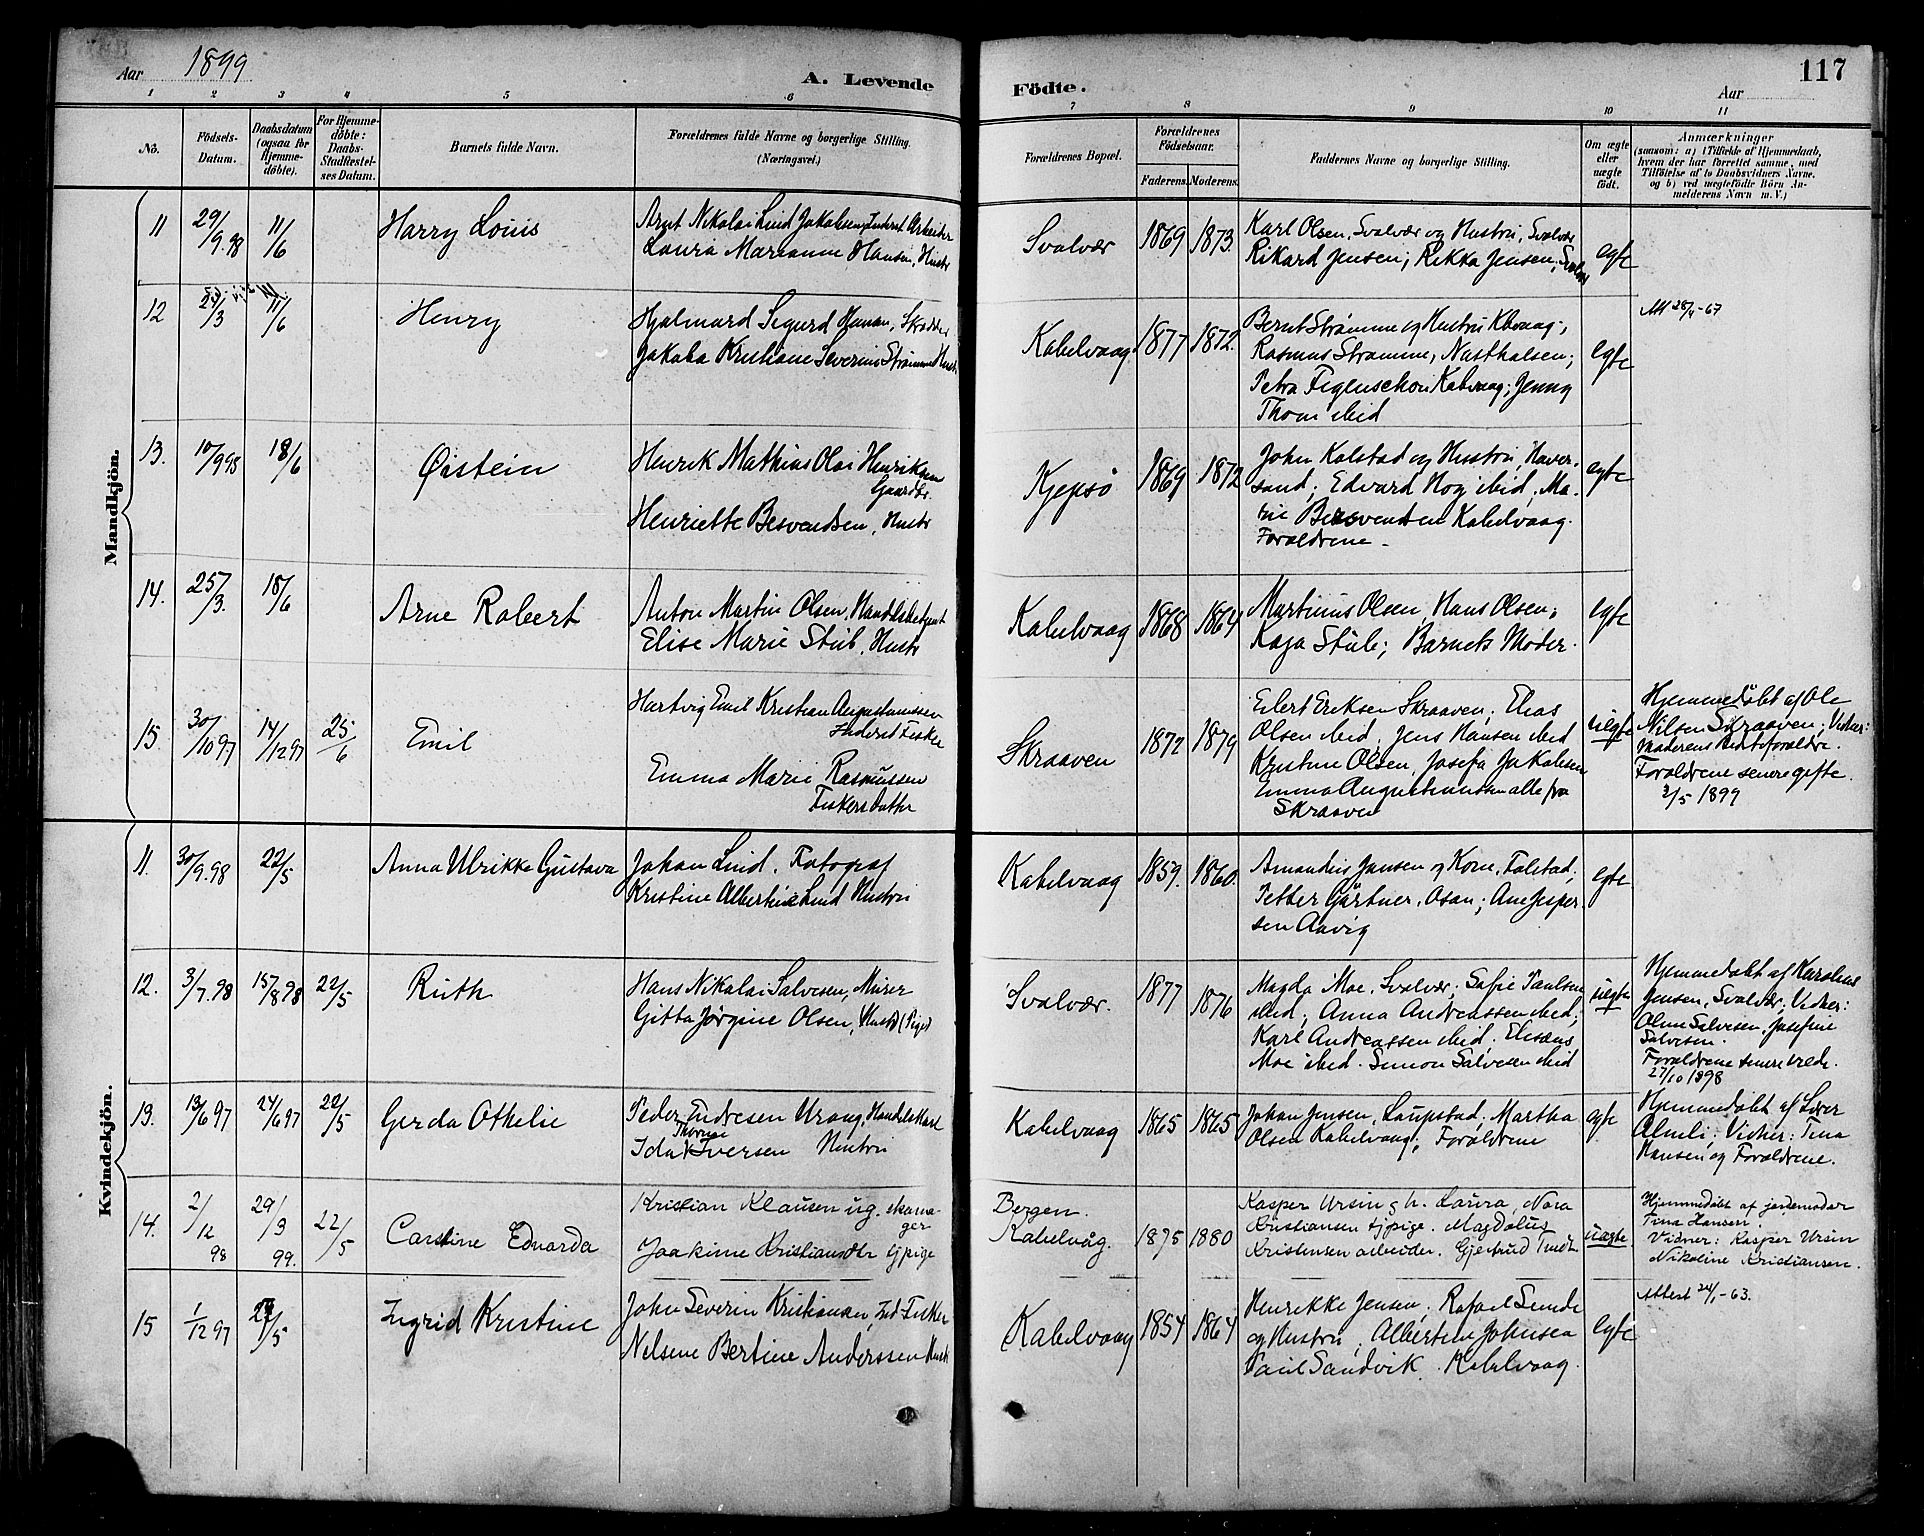 Aar 1899
A. Levende
Födte.
117
Aar
1 2 3 4 5 6 7 8 9 10 11
No.
Födsels-Datum.
Daabsdatum (ogsaa for Hjemme-döbte).
For Hjemme-döbte: Daabs-Stadfæstel-ses Datum.
Barnets fulde Navn.
Forældrenes fulde Navne og borgerlige Stilling.
(Næringsvei.)
Forældrenes Bopæl.
Forældrenes Födselsaar.
Faderens. Moderens.
Faddernes Navne og borgerlige Stilling.
Om ægte eller uægte födt.
Anmærkninger
(saasom: a) i Tilfælde af Hjemmedaab,
hvem der har forrettet samme, med
Tilföielse af to Daabsvidners Navne.
og b) ved uægtefödte Börn An-
melderens Navn m. V.)
Mandkjön.
11 29/9.98 11/6 Harry Louis
Arnt Nikolai Lind Jakobsen, Inderst Arbeider
Laura Marianne Hansen, Hustr
Svalvær 1869 1873.
Karl Olsen, Svalvær og Hustru, Svalvær
Rikard Jensen; Rikka Jensen, Svalvær
egte
12 24/3 11/6 Henry
Hjalmard Sigurd Hansen, Skrædder
Jakoba Kristiane Severine Strømme Hustr
Kabelvaag. 1877 1872.
Bernt Strømme og Hustru Kbvaag;
Rasmus Strømme, Nasthalsen;
Petra Figenschou Kabvaag; Jenny
Thom ibid
egte
Att 28/4-67
13. 10/9 98 18/6 Øistein
Henrik Mathias Olai Henriksen
Gaardbr.
Henriette Besvendsen, Hustr
Kjepsø 1869 1872
John Kalstad og Hustru, Haver-
sand; Edvard Hog ibid; Ma-
rie Besvendsen Kabelvaag.
Forældrene -
egte
14. 25/3. 18/6 Arne Robert
Anton Martin Olsen, Handelsbetjent
Elise Marie Stub, Hustr
Kabelvaag 1868 1864
Martinus Olsen, Hans Olsen;
Kaja Stub; Barnets Moder.
egte
15. 30/10 97 14/12 97 25/6 Emil
Hartvig Emil Kristian Augustinussen
Inderst Fisker
Emma Marie Rasmussen
Fiskers Datter
Skraaven 1872 1879
Eilert Eriksen Skraaven; Elias
Olsen ibid; Jens Hansen ibid
Kristine Olsen, Josefa Jakobsen
Emma Augustinussen alle fra
Skraaven
uegte
Hjemmedøbt af Ole
Nilsen Skraaven; Vidner:
Moderens Besteforældre.
Forældrene senere gifte.
2/5 1899
Kvindekjön.
11. 30/9.98 22/5 Anna Ulrikke Gustava
Johan Lind. Fotograf
Kristine Albertine Lind Hustru
Kabelvaag 1859. 1860.
Amandus Jansen og Kone, Falstad;
Petter Gärtner, Osan; Ane Jesper-
sen Aavig
egte
12. 3/7.98 15/8 98 22/5 Ruth
Hans Nikolai Salvesen, Murer
Gitta Jørgine Olsen, Hustr (Pige)
Svalvær. 1877 1876
Magda Moe, Svalvær; Sofie Paulsen
ibid; Anna Andreassen ibid;
Karl Andreassen ibid. Elisæus
Moe ibid. Simon Salvesen ibid
uegte
Hjemmedøbt af Karoline
Jensen, Svalvær; Vidner:
Oline Salvesen, Josefine
Salvesen.
Forældrene senere viede
27/10 1898
13. 13/6 97 24/6 97 22/5 Gerda Othelie
Peder Endresen Urang, Handelskarl
Ida Thorine Iversen Hustru
Kabelvaag 1865 1865
Johan Jensen, Laupstad, Martha
Olsen Kabelvaag; Forældrene
egte
Hjemmedøbt af Lærer
Almli; Vidner: Tina
Hansen og Forældrene.
14. 2/12 98 29/3 99. 22/5 Carstine Edvarda
Kristian Klausen ug. skoma-
ger
Joakime Kristiansdtr tjpige
Bergen.
Kabelvåg. 1875 1880
Kasper Ursin g h. Laura, Nora
Kristiansen tjpige. Magdalus
Kristensen arbeider. Gjertrud Tindt.
uægte
Hjemmedøbt af jordemoder
Tina Hansen.
Vidner: Kasper Ursin
Nikoline Kristiansen.
15 1/12 97 22/5 Ingrid Kristine
John Severin Kristiansen, Ind. Fisker
Nelsine Bertine Anderssen Hustr
Kabelvaag 1854 1864
Henrikke Jensen; Rafael Sunde
og Hustru; Albertine Johnsen
Paul Sandvik. Kabelvaag.
egte
Attest 24/1-63.